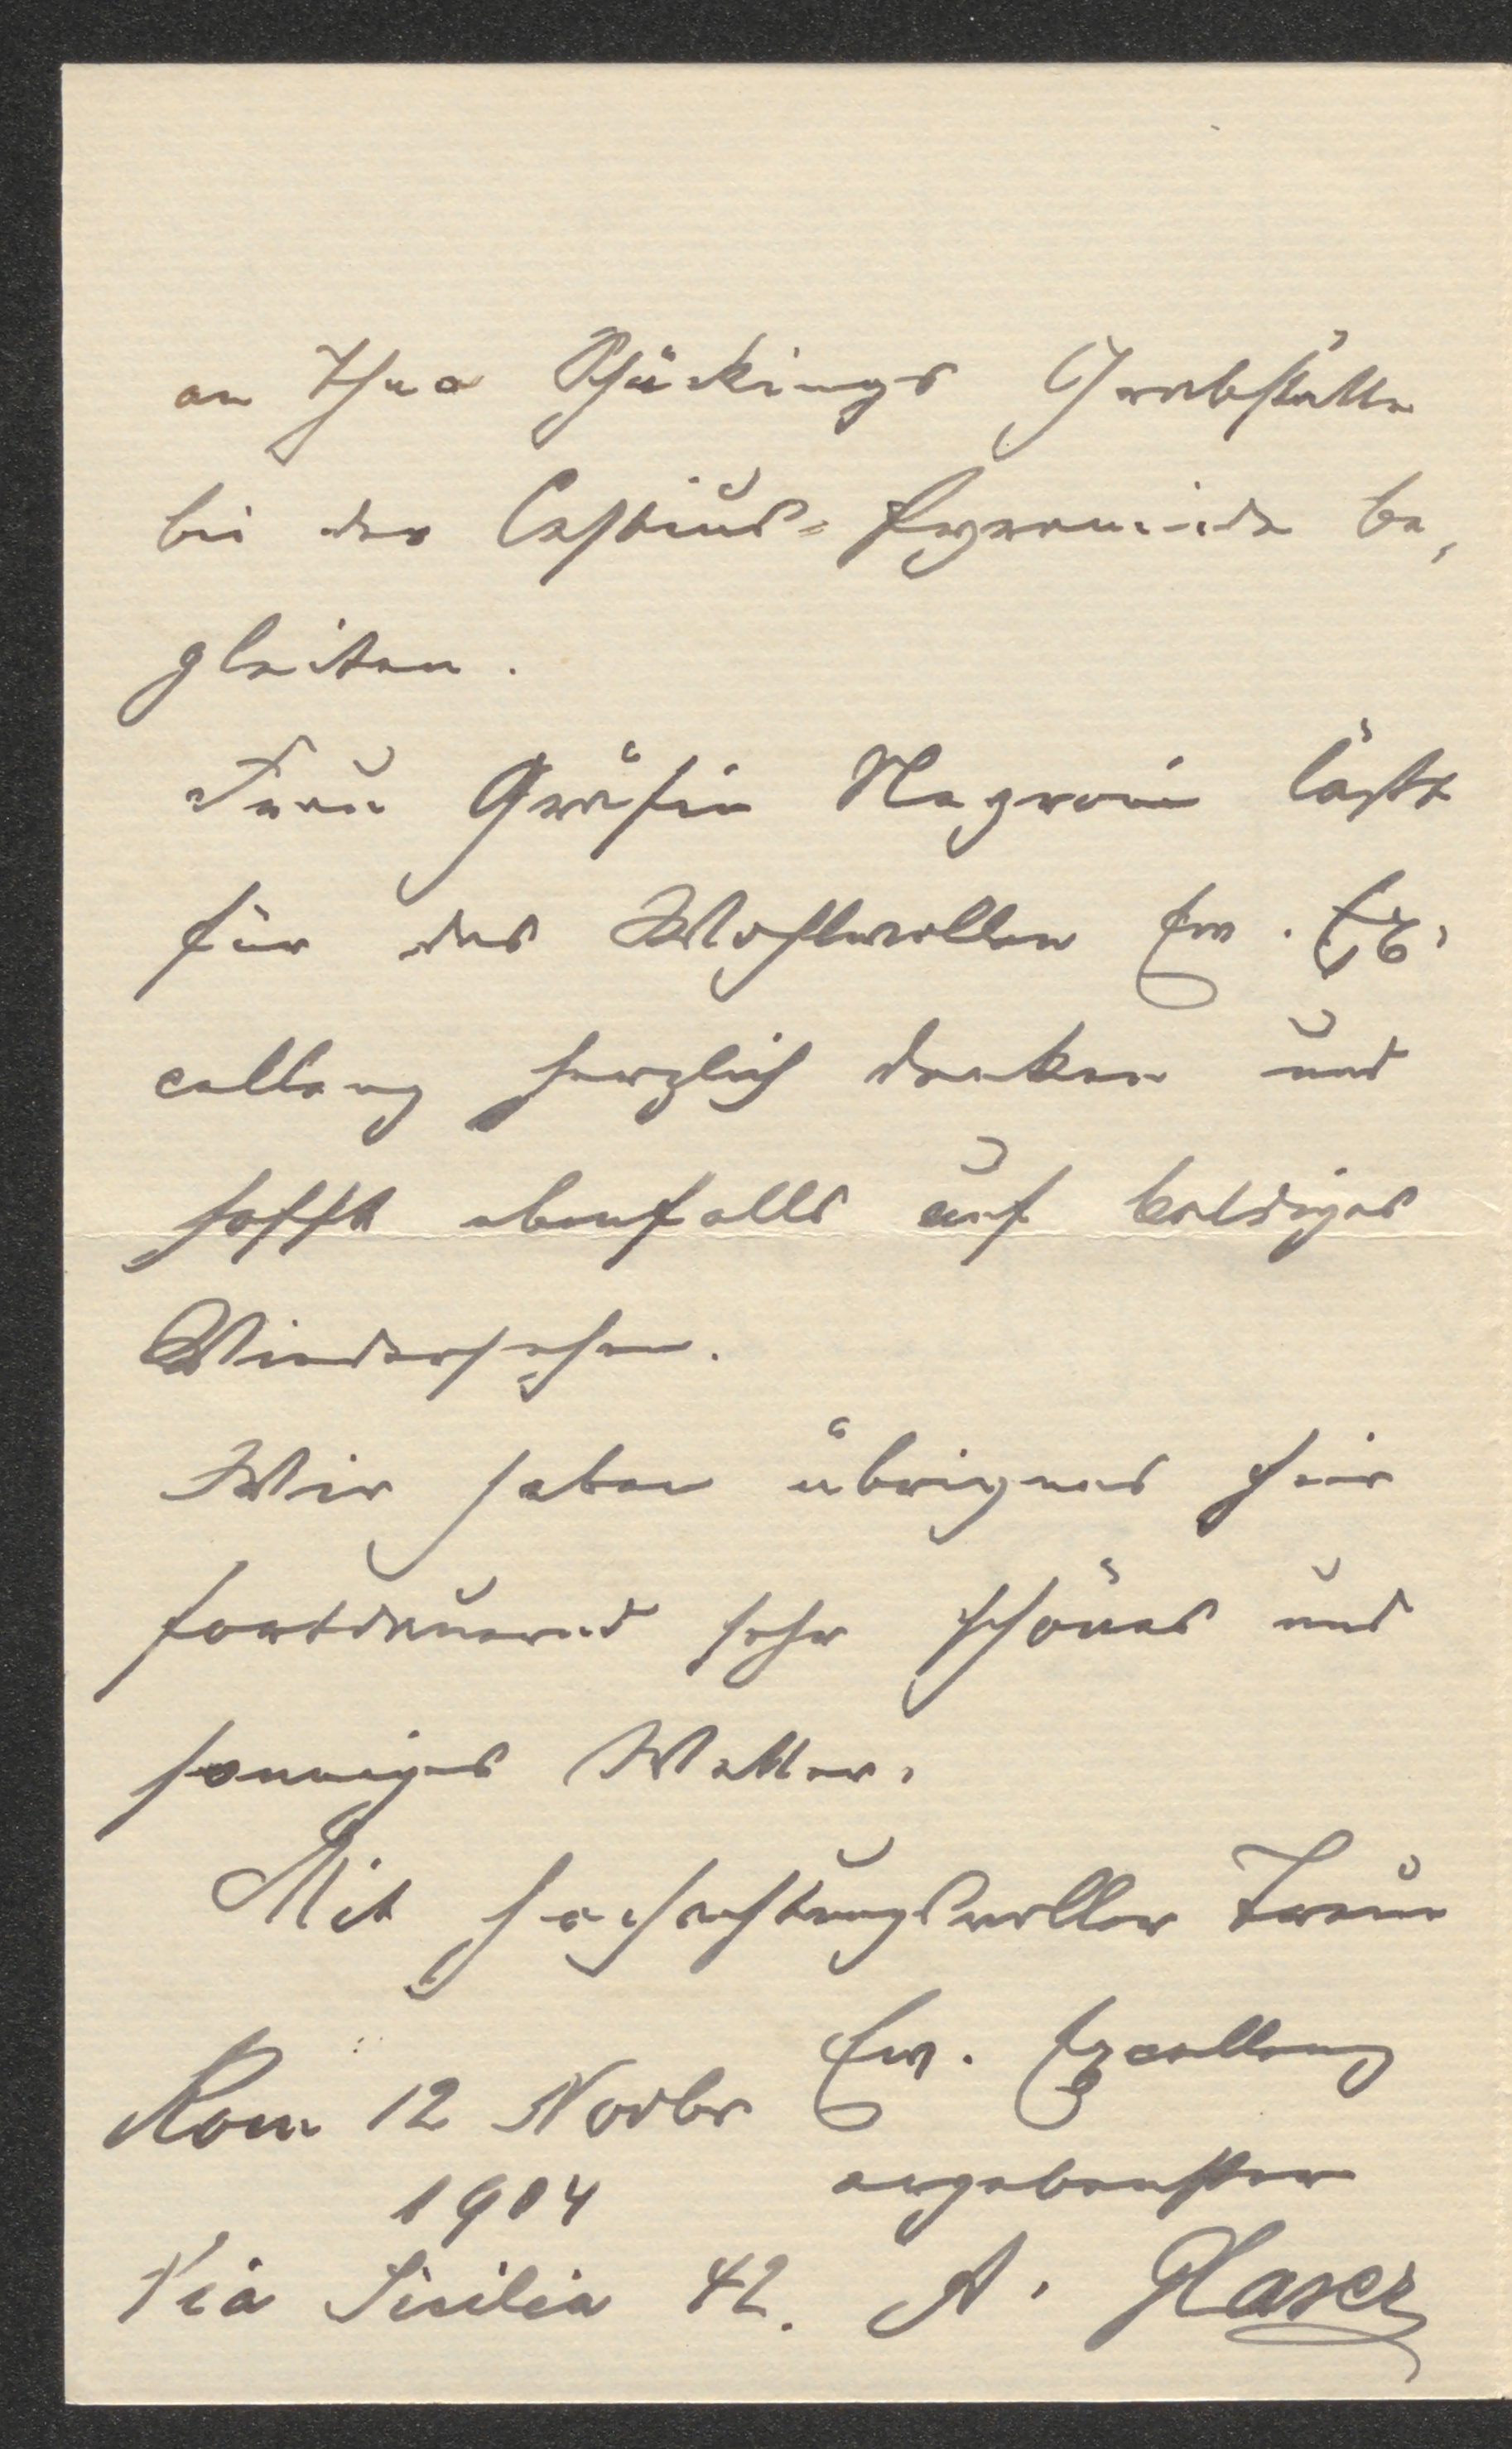 an Theo Schückings Grabstätte
bei der Cestius-Pyramide be-
gleiten.
Frau Gräfin Negroni läßt
für das Wohlwollen Ew. Ex-
cellenz herzlich danken und
hofft ebenfalls auf baldiges
Wiedersehen.
Wir haben übrigens hier
fortdauernd sehr schönes und
sonniges Wetter.
Mit hochachtungsvoller Treue
Ew. Excellenz
Rom 12 Novbr
1904
ergebenster
Via Sicilia 42. A. Glaser